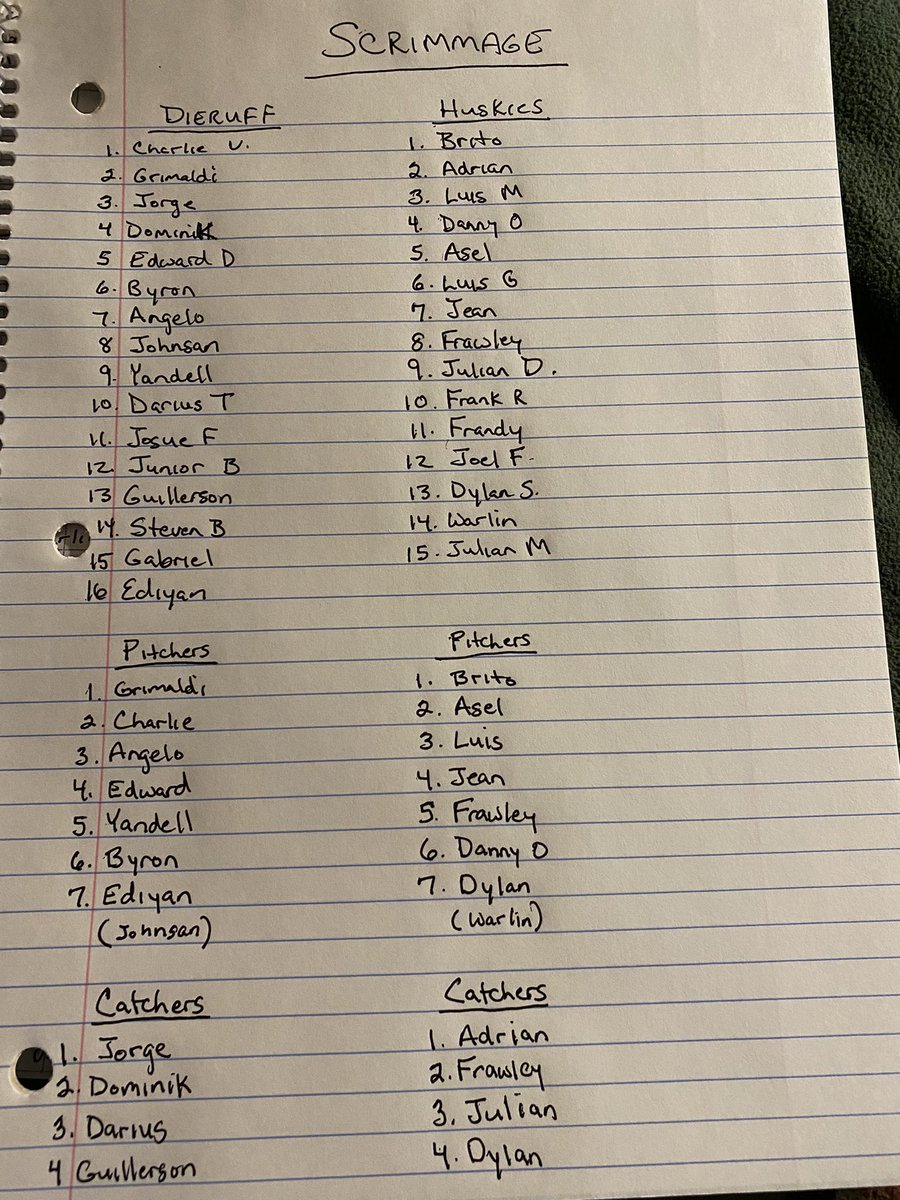 SCRIMMAGE
DIERUFF
1. Charlie V.
2. Grimaldi
3. Jorge
4 Dominik
5 Edward D
6. Byron
7. Angelo
8 Johnsan
9. Yandell
10. Darius T
11. Josue F
12. Junior B
13 Guillerson
14. Steven B
15 Gabriel
16 Ediyan
Huskies
1. Brito
2. Adrian
3. Luis M
4. Danny O
5. Asel
6. Luis G
7. Jean
8. Frawley
9. Julian D.
10. Frank R
11. Frandy
12 Joel F.
13. Dylan S.
14. Warlin
15. Julian M
Pitchers
1. Grimaldi
2. Charlie
3. Angelo
4. Edward
5. Yandell
6. Byron
7. Ediyan
(Johnsan)
Pitchers
1. Brito
2. Asel
3. Luis
4. Jean
5. Frawley
6. Danny O
7. Dylan
(Warlin)
Catchers
1. Jorge
2. Dominik
3. Darius
4 Guillerson
Catchers
1. Adrian
2. Frawley
3. Julian
4. Dylan